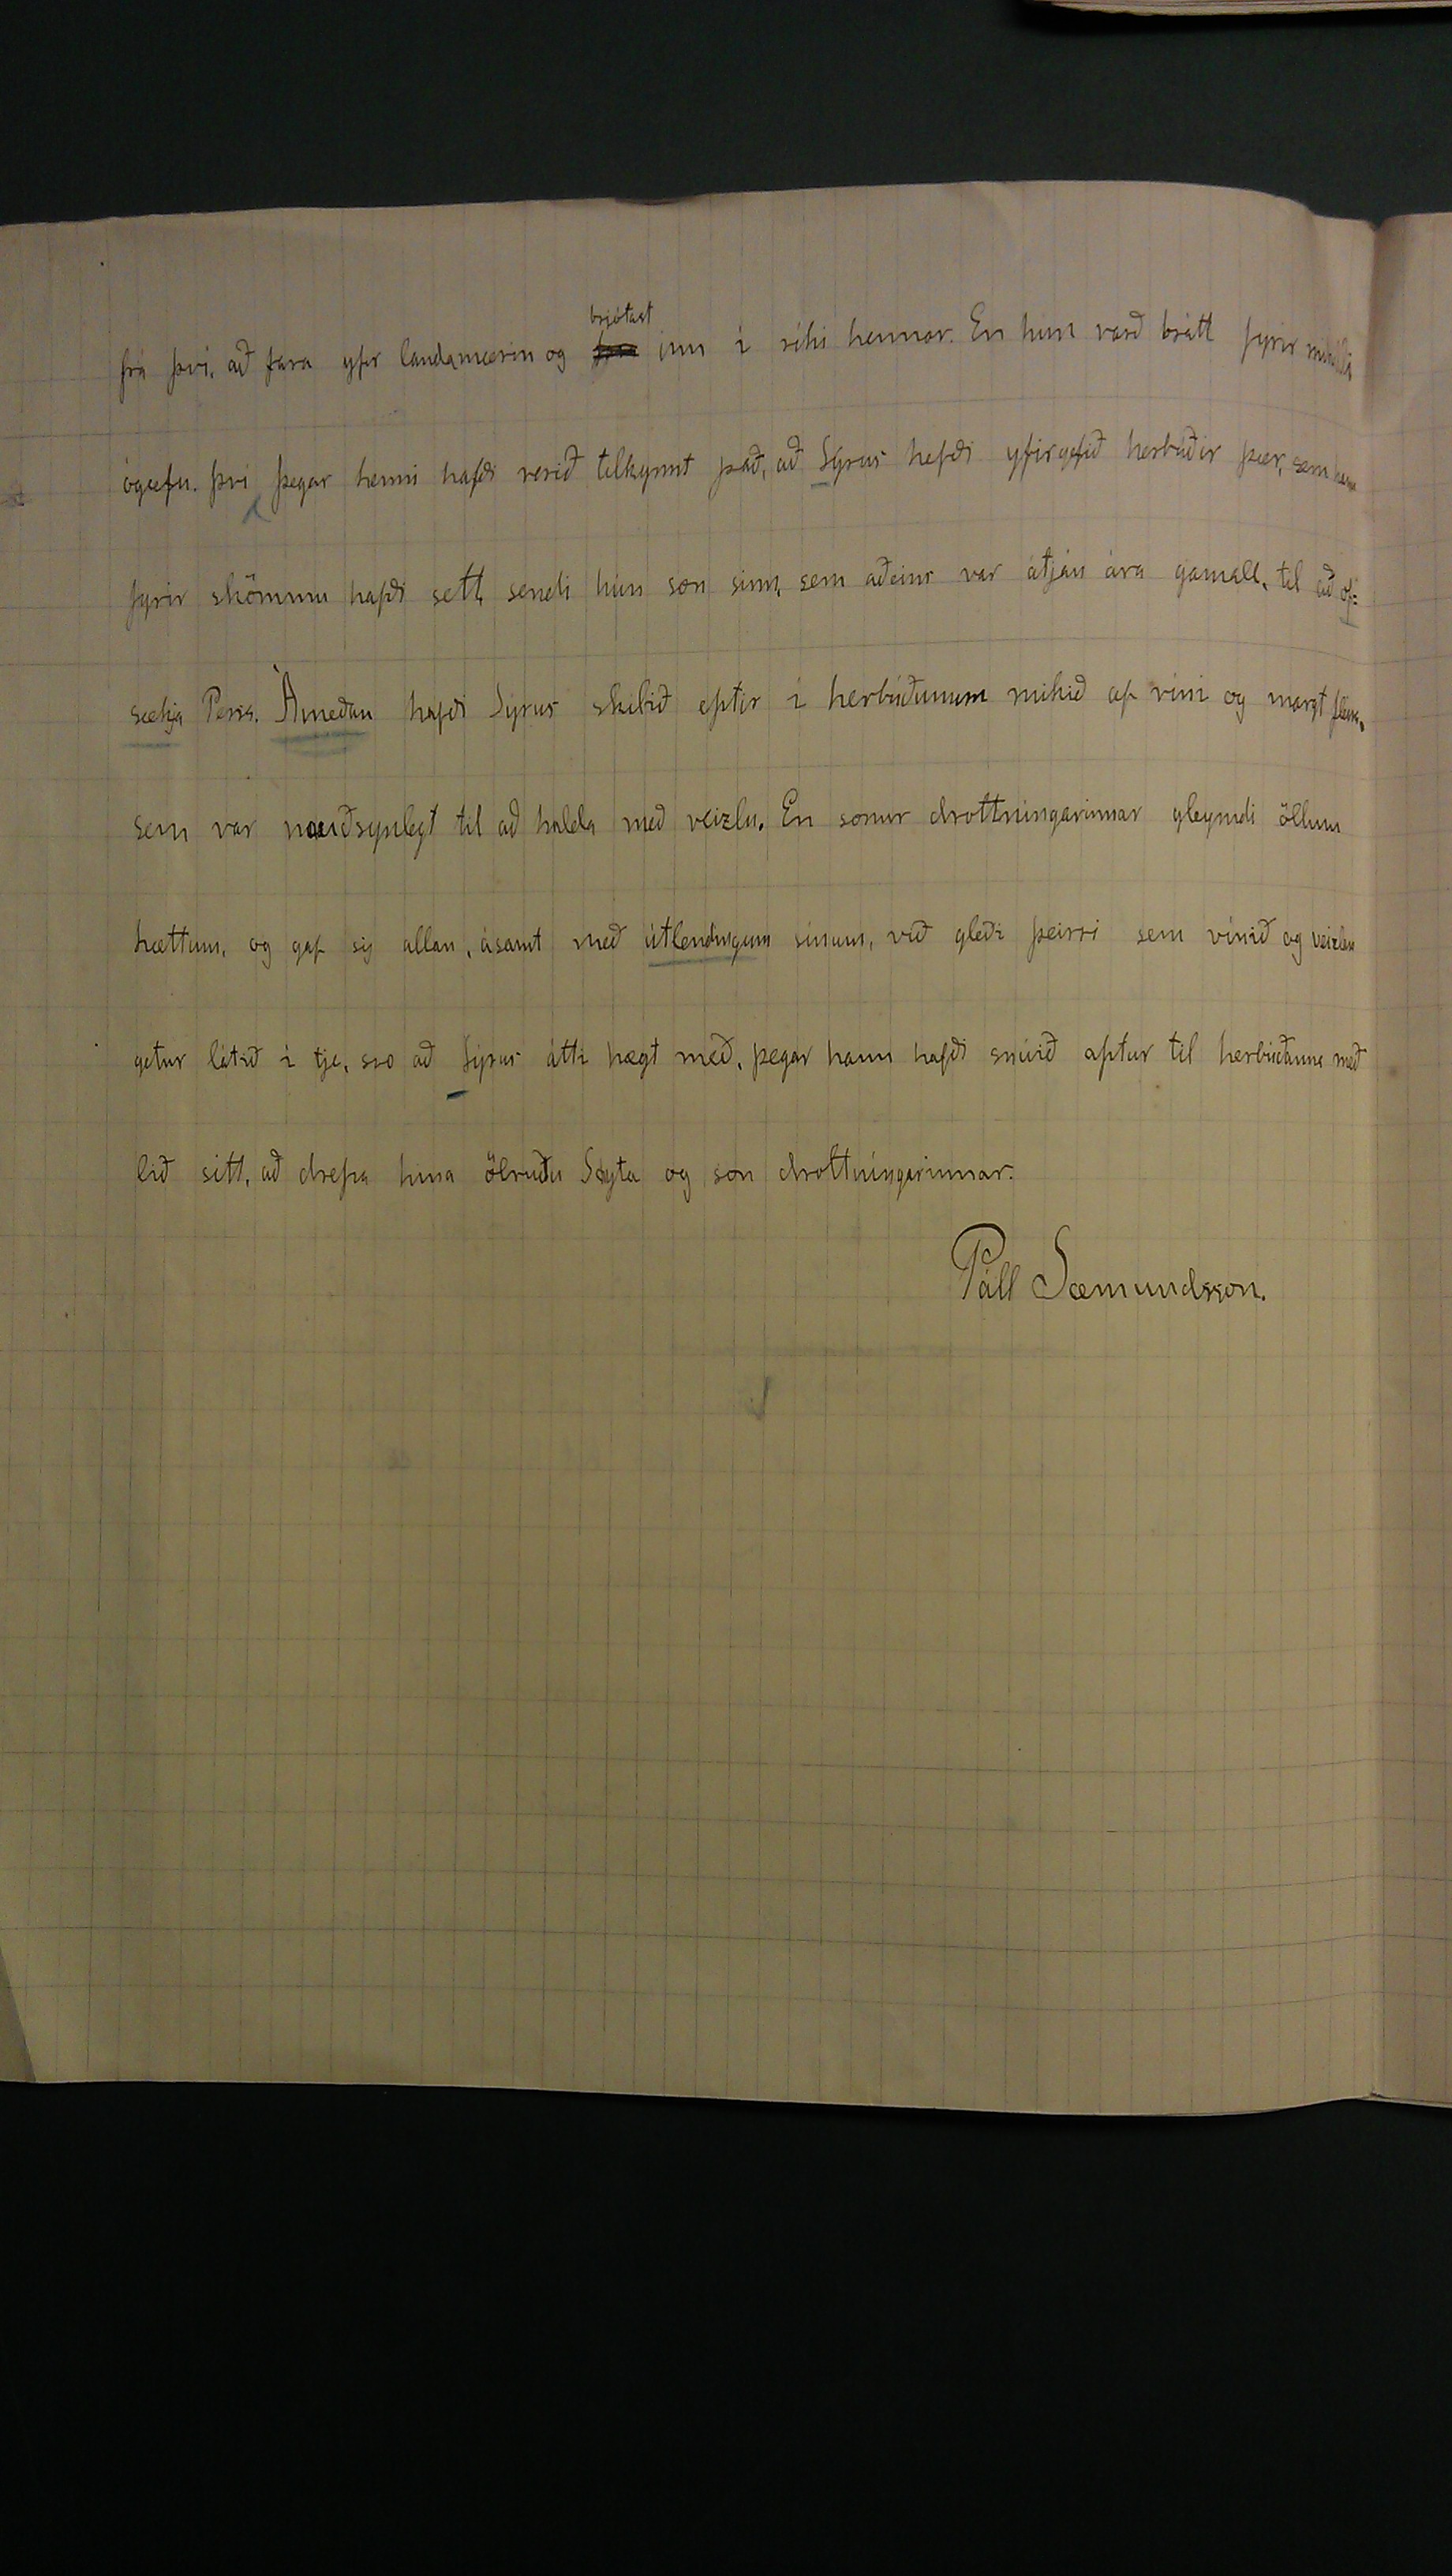 frá því, að fara yfir landamærin og brjótast inn í ríki hennar. En hun varð brátt fyrir mikilli
ógæfu. því þegar henni hafði verið tilkynnt það, að Sýrus hefði yfirgefið herbúðir þær, sem hann
fyrir skömmu hafði sett, sendi hún son sinn, sem aðeins var átján ára gamall, til að of-
sækja Persa. Ámeðan hafði Sýrus skilið eptir í herbúðunum mikið af víni og margt fleira,
sem var nauðsynlegt til að halda með veizlu. En sonur drottningarinnar gleymdi öllum
hættum, og gaf sig allan, ásamt með útlendingum sínum, við gleði þeirri sem vínið og veizlan
getur látið í tje, svo að Sýrus átti hægt með, þegar hann hafði snúið aptur til herbúðanna með
lið sitt, að drepa hina ölvuðu Scyta og son drottníngarinnar.
Páll Sæmundsson.